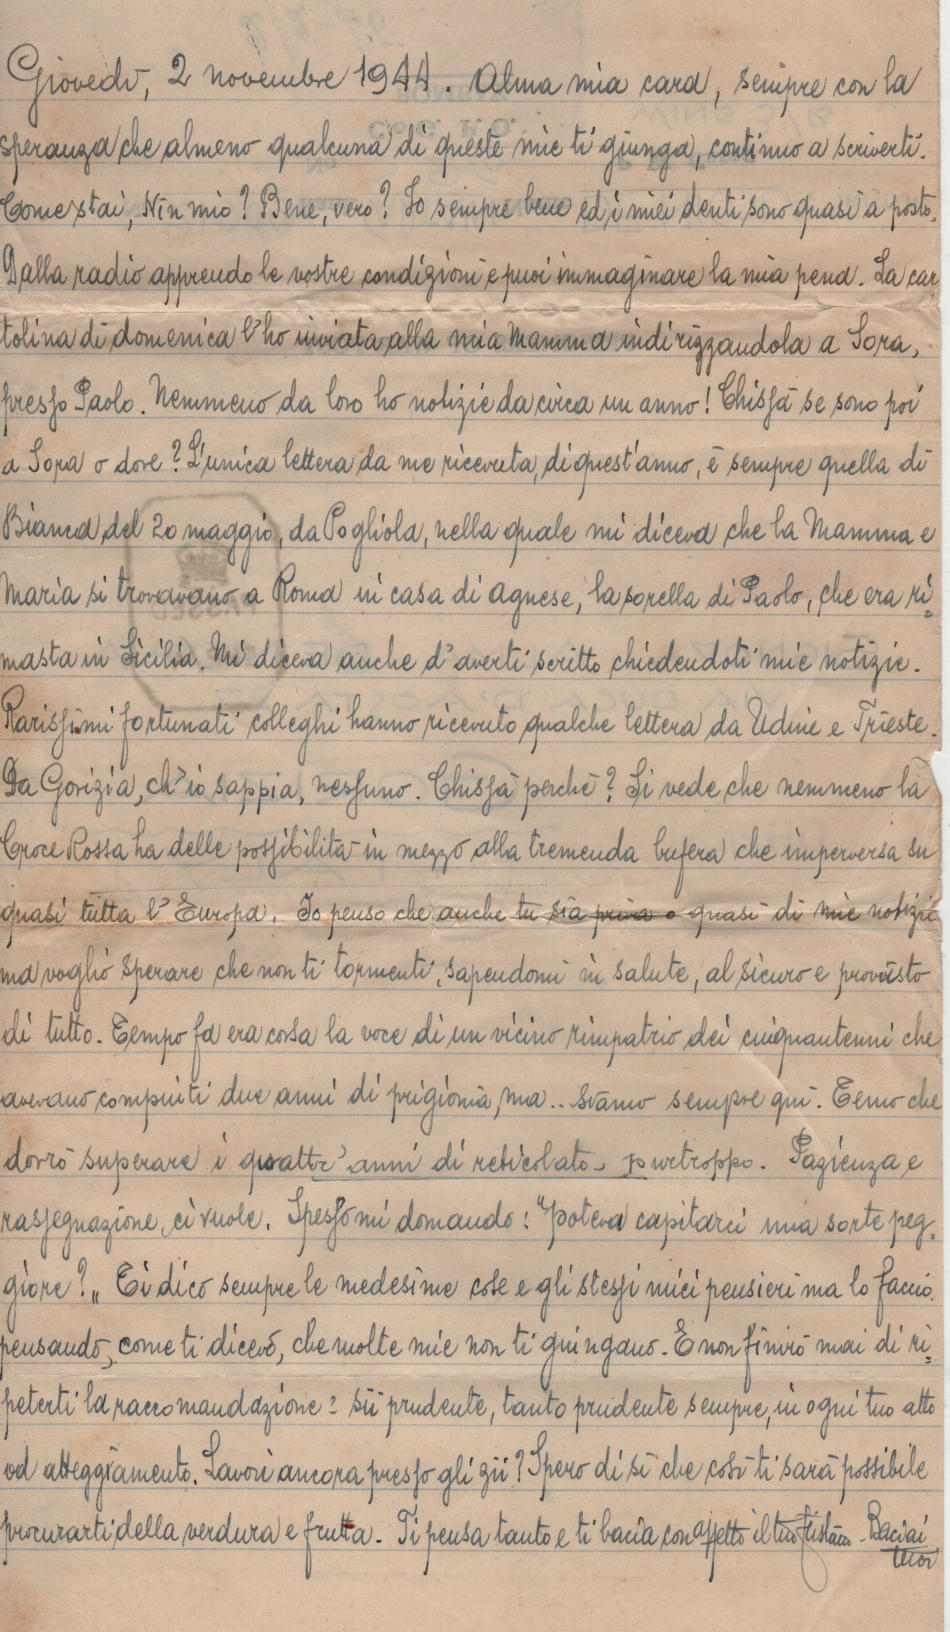 Giovedì, 2 novembre 1944. Alma mia cara, sempre con la
speranza che almeno qualcuna di queste mie ti giunga, continuo a scriverti.
Come stai, Nin mio? Bene, vero? Io sempre bene ed i miei denti sono quasi a posto.
Dalla radio apprendo le vostre condizioni e puoi immaginare la mia pena. La car
tolina di domenica l'ho inviata alla mia Mamma indirizzandola a Sora,
presso Paolo. Nemmeno da loro ho notizie da circa un anno! Chissà se sono poi
a Sora o dove? L'unica lettera da me ricevuta, di quest'anno, è sempre quella di
Bianca, del 20 maggio, da Pogliola, nella quale mi diceva che la Mamma e
Maria si trovavano a Roma in casa di Agnese, la sorella di Paolo, che era ri=
masta in Sicilia. Mi diceva anche d'averti scritto chiedendoti mie notizie.
Rarissimi fortunati colleghi hanno ricevuto qualche lettera da Udine e Trieste.
Da Gorizia, ch'io sappia, nessuno. Chissà perché? Si vede che nemmeno la
Croce Rossa ha delle possibilità in mezzo alla tremenda bufera che imperversa su
quasi tutta l'Europa. Io penso che anche tu sia priva o quasi di mie notizie
ma voglio sperare che non ti tormenti, sapendomi in salute, al sicuro e provvisto
di tutto. Tempo fa era corsa la voce di un vicino rimpatrio dei cinquantenni che
avevano compiuti due anni di prigionia, ma.. siamo sempre qui. Temo che
dovrò superare i quattr'anni di reticolato, purtroppo. Pazienza e
rassegnazione, ci vuole. Spesso mi domando: "poteva capitarci una sorte peg=
giore?„ Ti dico sempre le medesime cose e gli stessi miei pensieri ma lo faccio
pensando, come ti dicevo, che molte mie non ti giungano. E non finirò mai di ri=
peterti la raccomandazione: sii prudente, tanto prudente sempre, in ogni tuo atto
od atteggiamento. Lavori ancora presso gli zii? Spero di sì che così ti sarà possibile
procurarti della verdura e frutta. Ti pensa tanto e ti bacia con affetto il tuo Baciai
tuoi